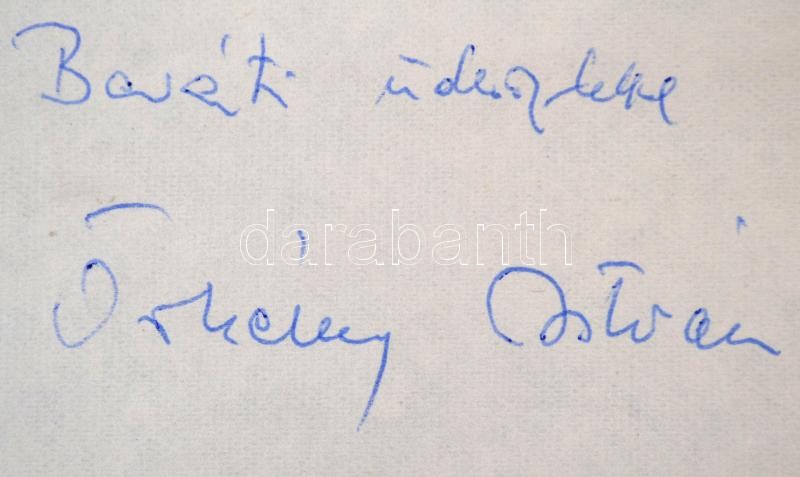 Baráti üdvözlettel
Örkény István
darabanth